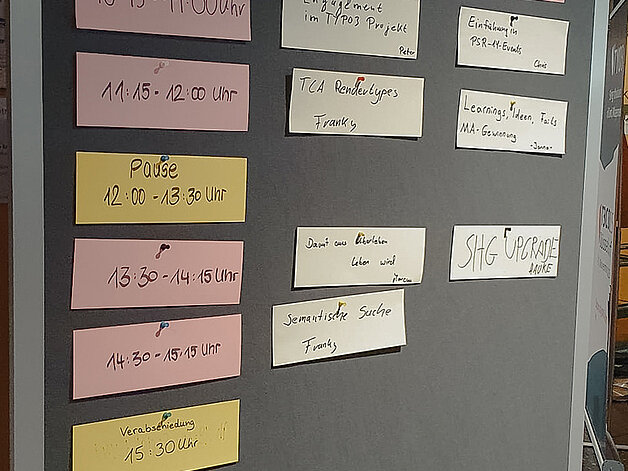 11:00 Uhr
Engagement
im TYPO3 Projekt
Peter
Einführung in
PSR-14-Events
Chris
11:15 - 12:00 Uhr
TCA Rendertypes
Franky
Learnings, Ideen, Fails
MA-Gewinnung
Pause
12:00 - 13:30 Uhr
13:30 - 14:15 Uhr
Damit aus Überleben
Leben wird
SHG UPGRADE
14:30 - 15:15 Uhr
Semantische Suche
Franky
Verabschiedung
15:30 Uhr